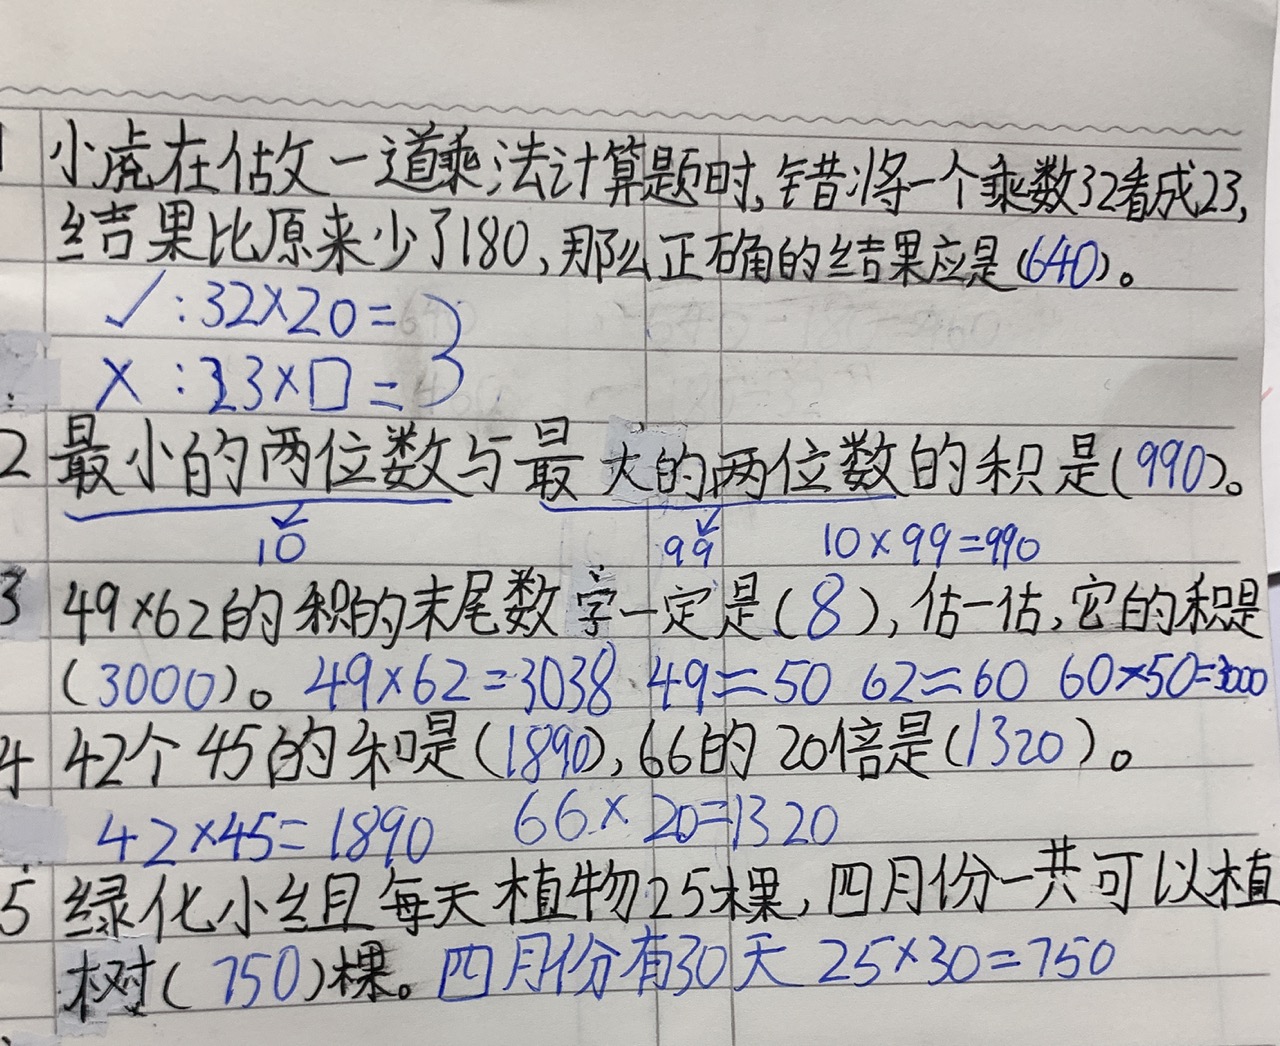 1 小虎在估文一道乘法计算题时,错将一个乘数32看成23,
结果比原来少了180,那么正确的结果应是(640)。
✓:32×20=
×:23×□=
2 最小的两位数与最大的两位数的积是(990)。
10 99 10×99=990
3 49×62的积的末尾数字一定是(8),估一估,它的积是
(3000)。49×62=3038 49≈50 62≈60 60×50=3000
4 42个45的和是(1890),66的20倍是(1320)。
42×45=1890 66×20=1320
5 绿化小组每天植物25棵,四月份一共可以植
树(750)棵。四月份有30天 25×30=750